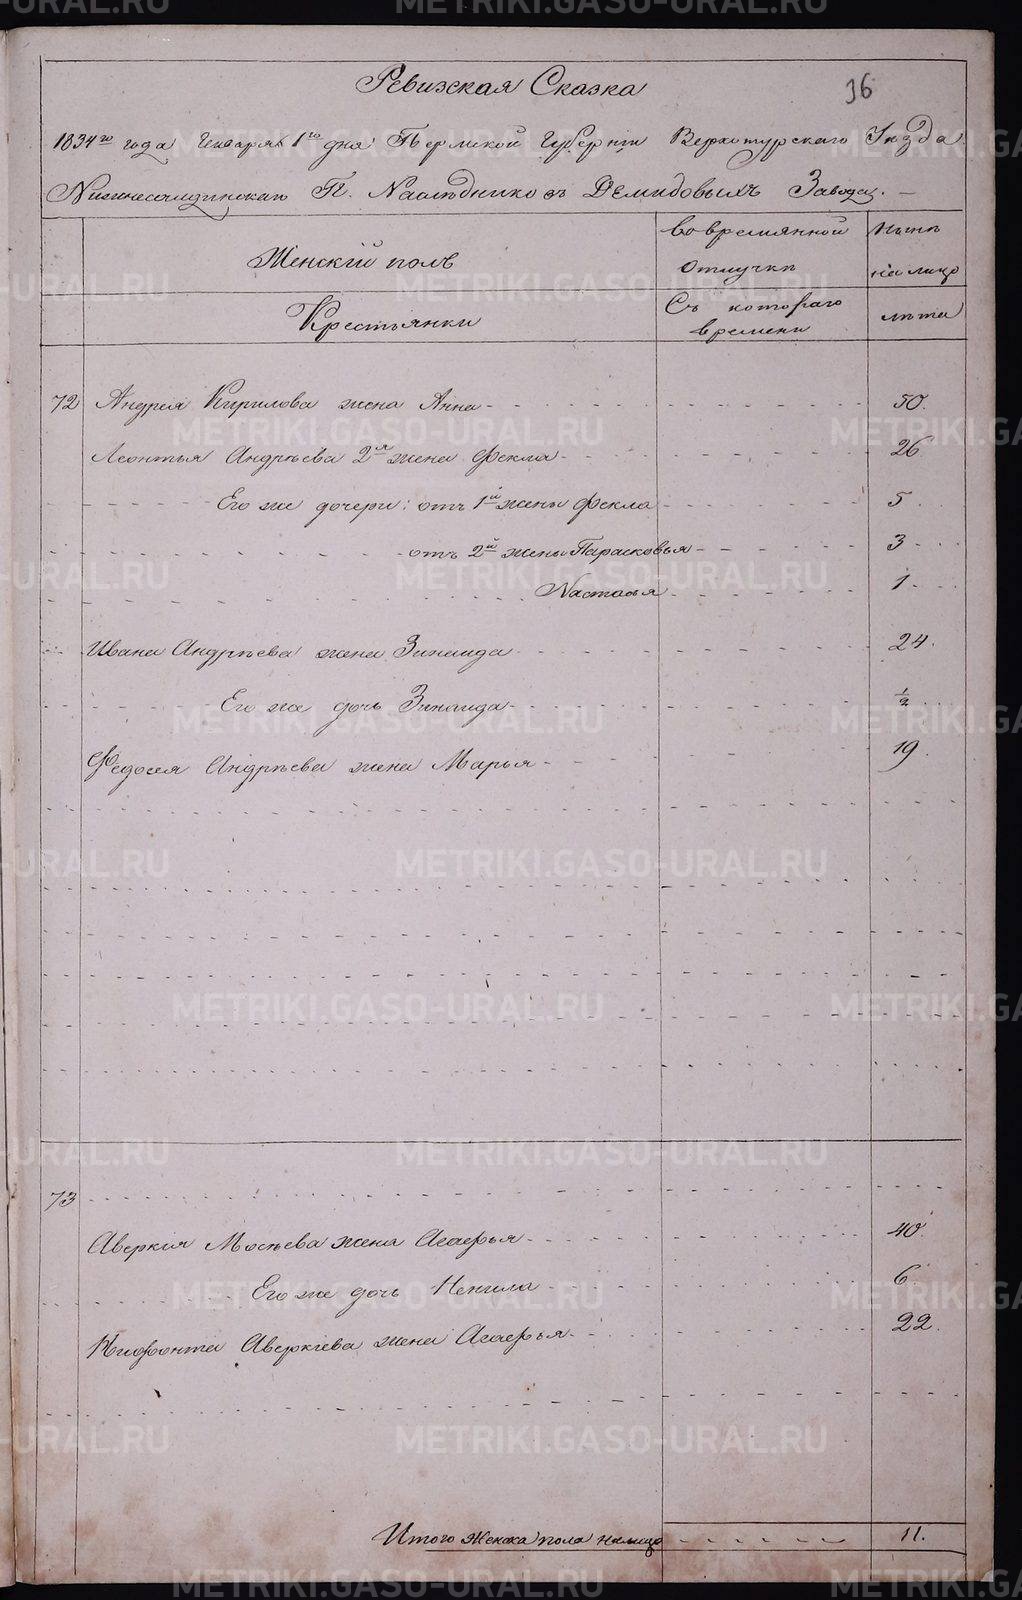 Ревизская Сказка
36
1834го года Генваря 1го дня Пермской Губернiи Верхотурскаго Уѣзда
Нижнесалдинскаго Г. Наслѣдниковъ Демидовыхъ Завода.
Женскiй полъ
Во временной отлучки
нынѣ на лицо
Крестьянки
Съ котораго времени
лѣта
72 Андрея Кирилова жена Анна 50.
Леонтья Андрѣева 2я жена Фекла 26
Его же дочери: отъ 1й жены Фекла 5
отъ 2й жены Парасковья 3
Настасья 1
Ивана Андрѣева жена Зинаида 24.
Его же дочь Зинаида 1/2
Федосея Андрѣева жена Марья 19.
73
Аверкiя Мосѣева жена Агафья 40.
Его же дочь Ненила 6.
Аверкiева жена Агафья 22.
Итого женска пола налицо 11.
METRIKI.GASO-URAL.RU